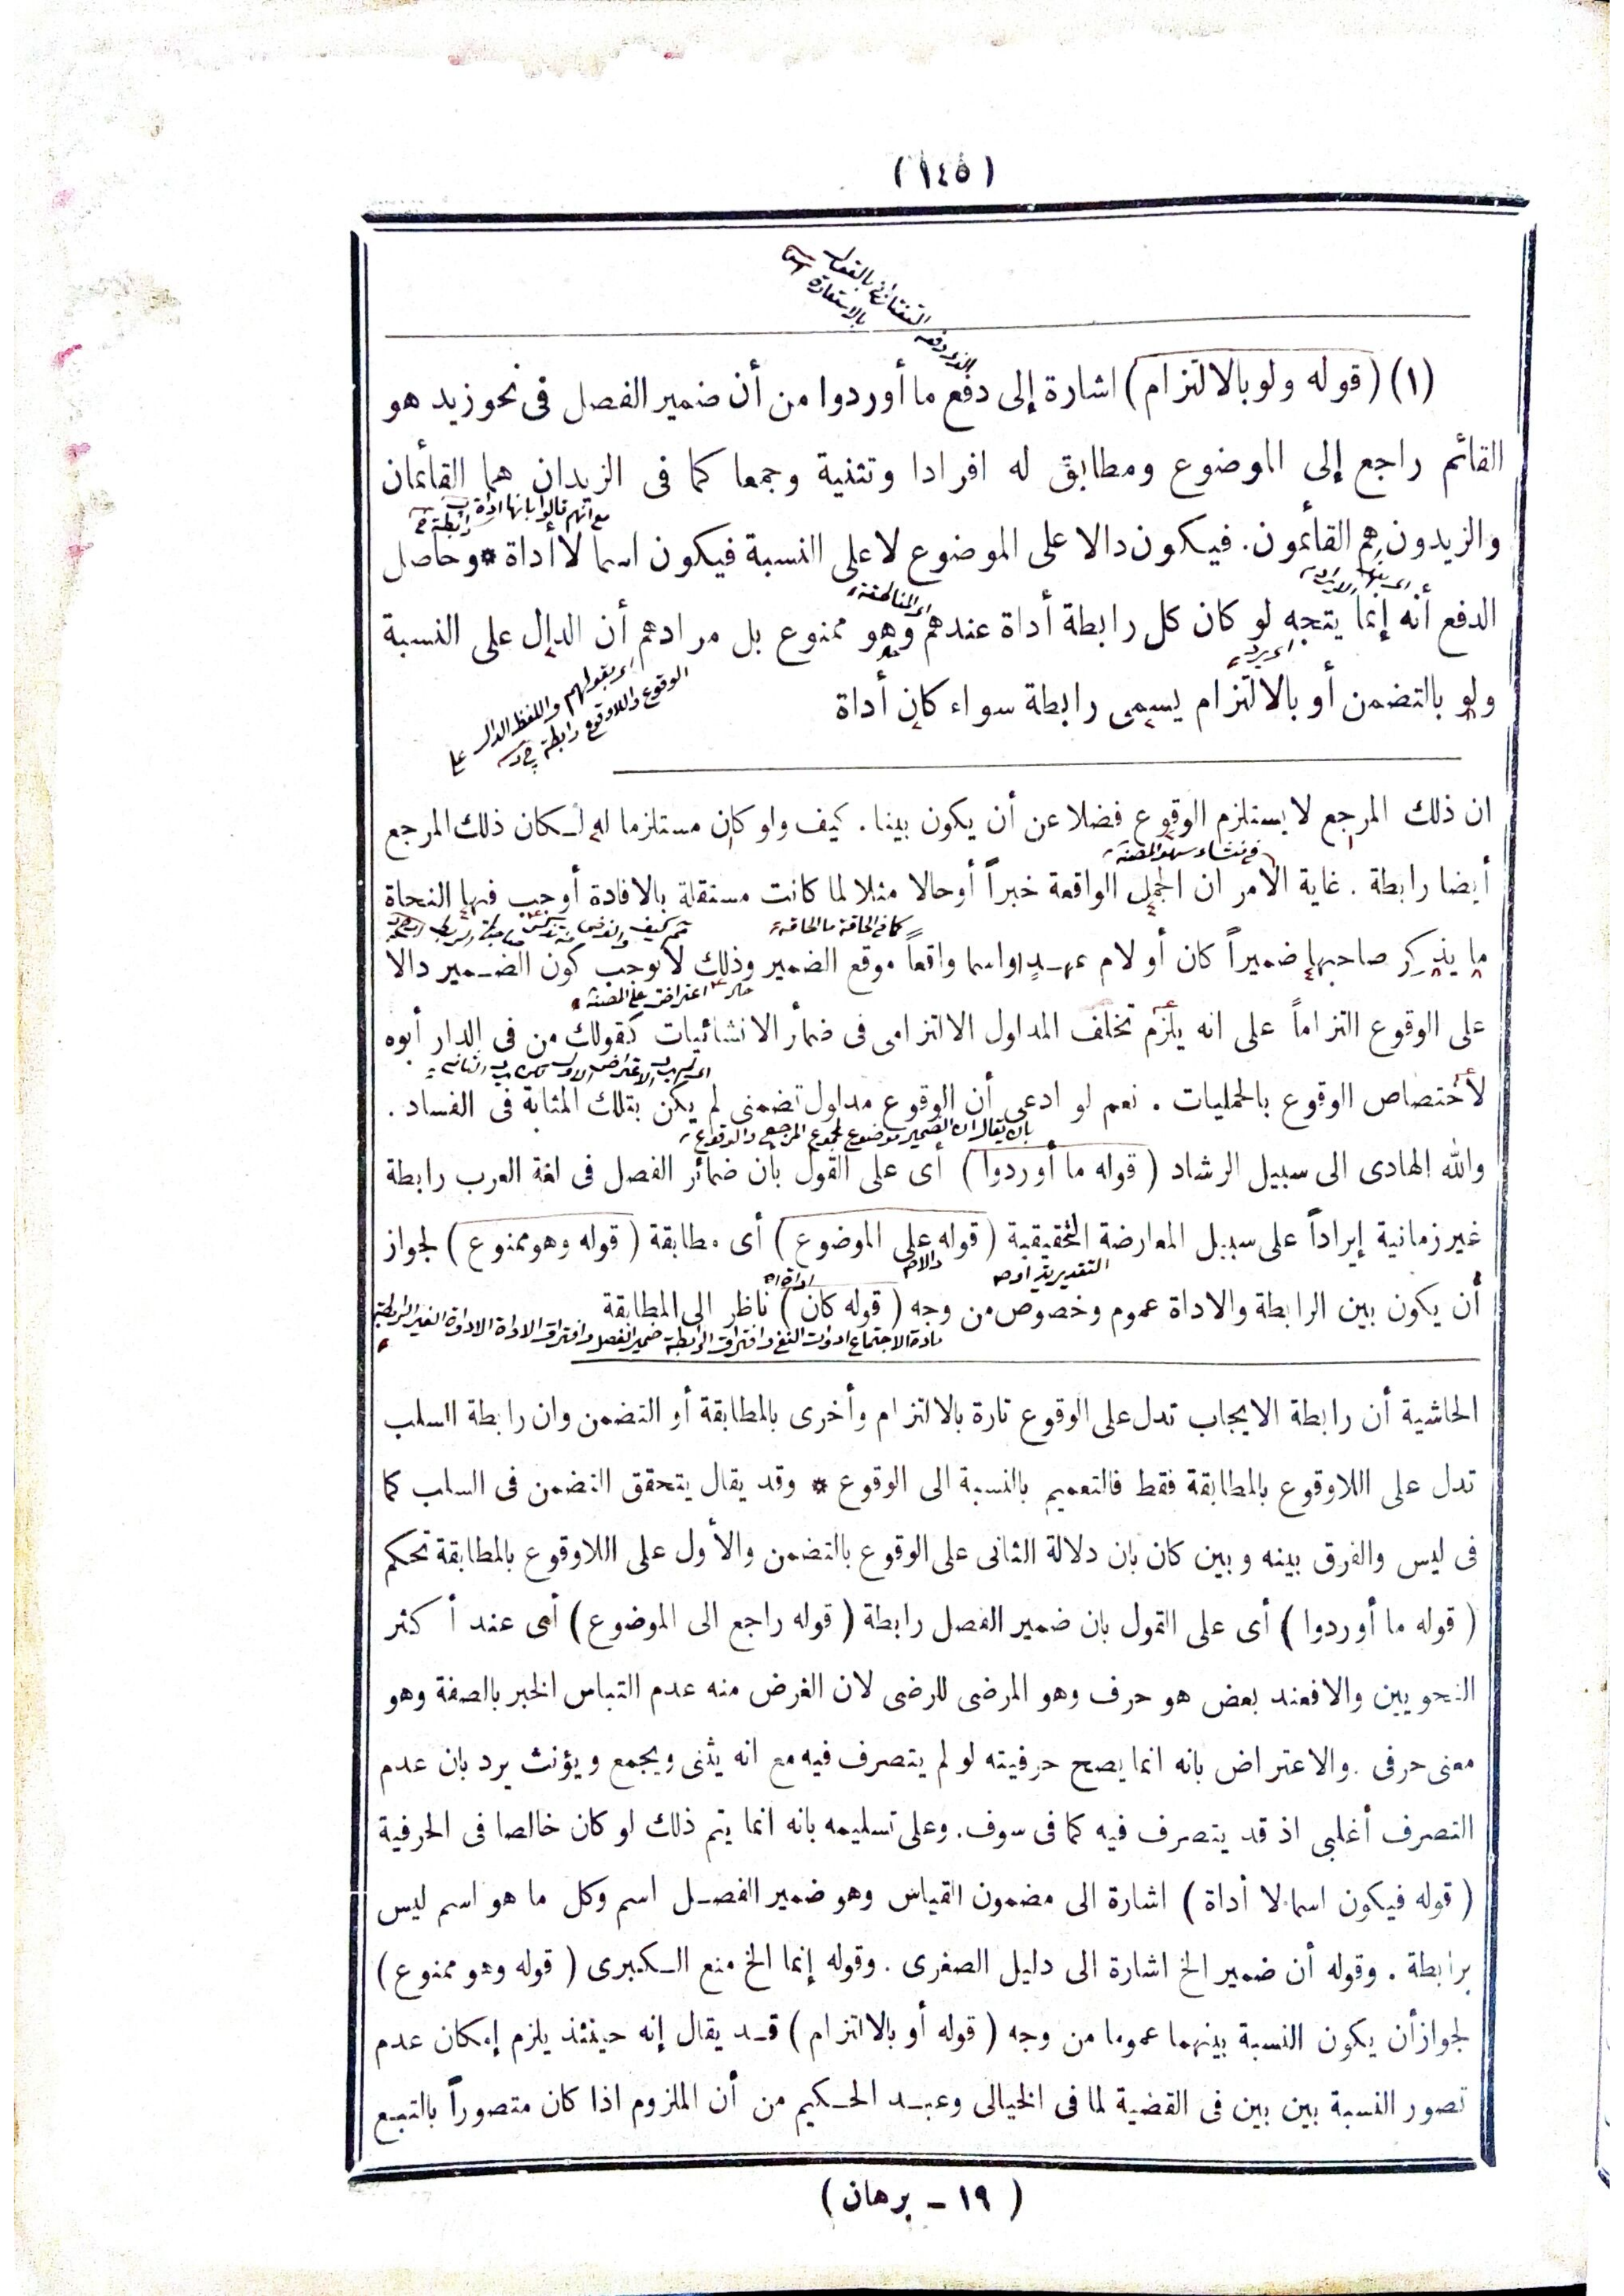 (١٤٥)
التفتازانى
بالاستعارة
(١) (قوله ولو بالالتزام) اشارة إلى دفع ما أوردوا من أن ضمير الفصل فى نحو زيد هو
القائم راجع إلى الموضوع ومطابق له افرادا وتثنية وجمعا كما فى الزيدان هما القائمان
مع أنهم قالوا بانها اداة
رابطة
والزيدون هم القائمون. فيكون دالا على الموضوع لا على النسبة فيكون اسما لا أداة * وحاصل
الدفع أنه إنما يتجه لو كان كل رابطة أداة عندهم وهو ممنوع بل مرادهم أن الدال على النسبة
اى يرد
اى بقولهم واللفظ الدال على
الوقوع واللاوقوع رابطة
ولو بالتضمن أو بالالتزام يسمى رابطة سواء كان أداة
ان ذلك المرجع لا يستلزم الوقوع فضلا عن أن يكون بينا. كيف ولو كان مستلزما له لكان ذلك المرجع
أيضا رابطة. غاية الامر ان الجمل الواقعة خبراً أوحالا مثلا لما كانت مستقلة بالافادة أوجب فيها النحاة
كما فى الحاقة ما الحاقة
ما يذكر صاحبها ضميراً كان أو لام عهد او اسما واقعاً موقع الضمير وذلك لا يوجب كون الضمير دالا
اعتراض على المصنف
على الوقوع التزاماً على انه يلزم تخلف المدلول الالتزامى فى ضمائر الانشائيات كقولك من فى الدار أبوه
لأختصاص الوقوع بالحمليات. نعم لو ادعى أن الوقوع مدلول تضمنى لم يكن بتلك المثابة فى الفساد.
بان يقال ان الضمير موضوع لمجموع المرجع والوقوع
والله الهادى الى سبيل الرشاد (قوله ما أوردوا) أى على القول بأن ضمائر الفصل فى لغة العرب رابطة
غير زمانية إيراداً على سبيل المعارضة التحقيقية (قوله على الموضوع) أى مطابقة (قوله وهو ممنوع) لجواز
التقديرية
أن يكون بين الرابطة والاداة عموم وخصوص من وجه (قوله كان) ناظر الى المطابقة
مادة الاجتماع ادوات النفى وافتراق الرابطة ضمير الفصل وافتراق الاداة الادواة الغير الرابطة
الحاشية أن رابطة الايجاب تدل على الوقوع تارة بالالتزام وأخرى بالمطابقة أو التضمن وان رابطة السلب
تدل على اللاوقوع بالمطابقة فقط فالتعميم بالنسبة الى الوقوع * وقد يقال يتحقق التضمن فى السلب كما
فى ليس والفرق بينه وبين كان بان دلالة الثانى على الوقوع بالتضمن والأول على اللاوقوع بالمطابقة تحكم
(قوله ما أوردوا) أى على القول بان ضمير الفصل رابطة (قوله راجع الى الموضوع) أى عند أكثر
النحويين والا فعند بعض هو حرف وهو المرضى للرضى لان الغرض منه عدم التباس الخبر بالصفة وهو
معنى حرفى. والاعتراض بانه انما يصح حرفيته لو لم يتصرف فيه مع انه يثنى ويجمع ويؤنث يرد بان عدم
التصرف أغلبى اذ قد يتصرف فيه كما فى سوف. وعلى تسليمه بانه انما يتم ذلك لو كان خالصا فى الحرفية
(قوله فيكون اسما لا أداة) اشارة الى مضمون القياس وهو ضمير الفصل اسم وكل ما هو اسم ليس
برابطة. وقوله أن ضمير الخ اشارة الى دليل الصغرى. وقوله إنما الخ منع الكبرى (قوله وهو ممنوع)
لجواز أن يكون النسبة بينهما عموما من وجه (قوله أو بالالتزام) قد يقال إنه حينئذ يلزم إمكان عدم
تصور النسبة بين بين فى القضية لما فى الخيالى وعبد الحكيم من أن الملزوم اذا كان متصوراً بالتبع
(١٩ - برهان)